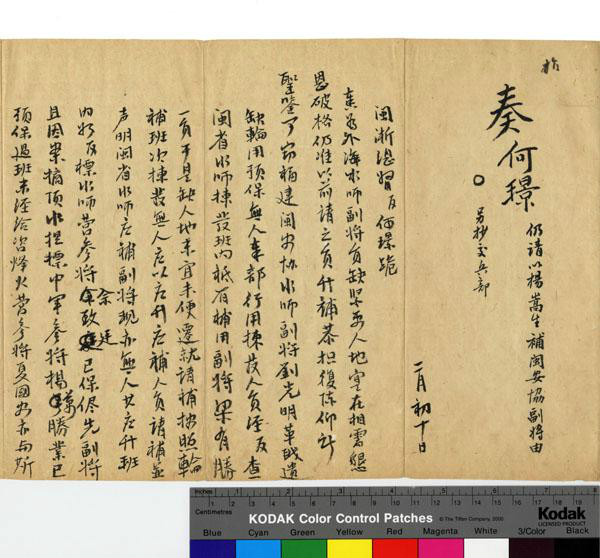 摺
奏何璟
仍請以楊嵩生補閩安協副將由
另抄交兵部
二月初十日
閩浙總督臣何璟跪
奏為外海水師副將員缺緊要人地實在相需懇
恩破格仍准以前請之員升補恭摺復陳仰祈
聖鑒事竊福建閩安協水師副將劉光明革職遺
缺輪用預保無人奉部行用揀發人員經臣查
閩省水師揀發班內祗有補用副將梁有勝
一員于是缺人地未宜未便遷就請補按照輪
補班次揀發無人應以應升應補人員請補並
聲明閩省水師應補副將現亦無人其應升班
內水師提標水師營參將余致廷已保儘先副將
且因案摘頂水提標中軍參將楊 勝業已
預保過班未經給咨烽火營參將夏國 亦與所
inches 1 2 3 4 5 6 7 8
Centimetres
KODAK Color Control Patches
© The Tiffen Company, 2000
Kodak
LICENSED PRODUCT
Blue Cyan Green Yellow Red Magenta White 3/Color Black